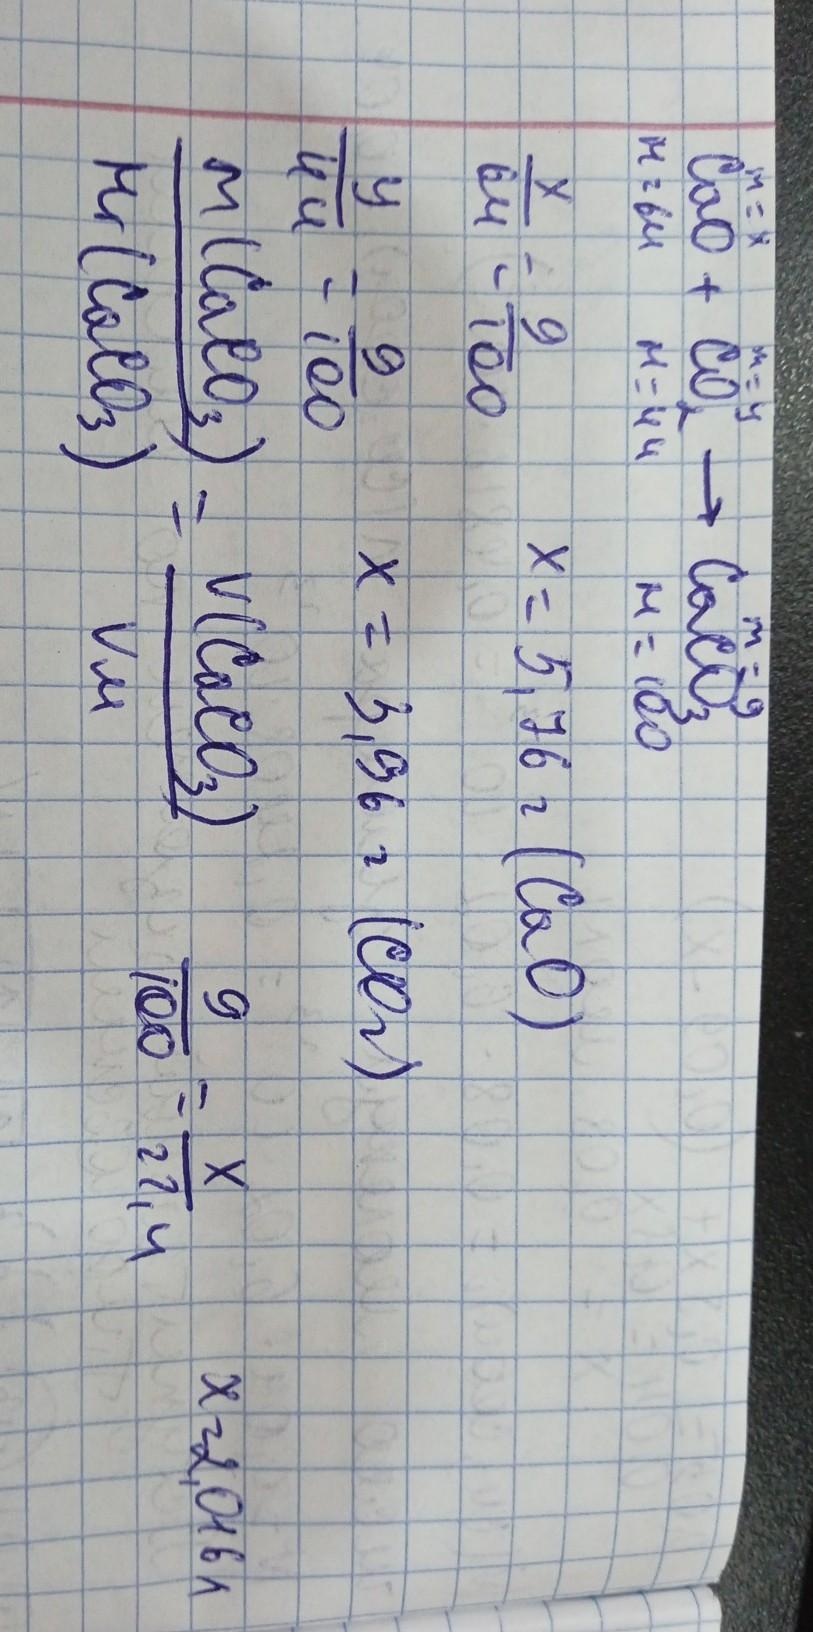 m=x m=y m=9
CaO + CO₂ → CaCO₃
M=64 M=44 M=100
x/64 = 9/100 x = 5,76 г (CaO)
y/44 = 9/100 x = 3,96 г (CO₂)
M(CaCO₃)/Mr(CaCO₃) = V(CaCO₃)/Vм 9/100 = x/22,4 x=2,016 л